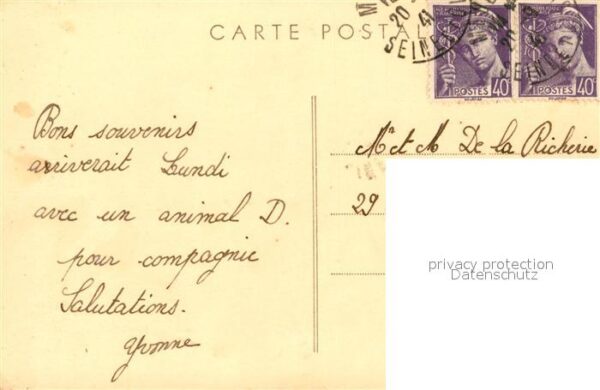 CARTE POSTALE
20
41
SEINE
POSTES 40c
POSTES 40c
Bons souvenirs
arriverait Lundi
avec un animal D.
pour compagnie
Salutations.
Yvonne
Mr et M De la Richerie
29
privacy protection
Datenschutz